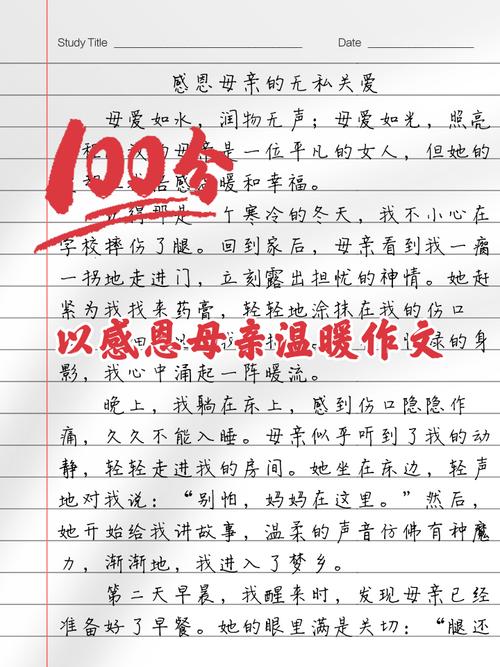 Study Title
Date
感恩母亲的无私关爱
母爱如水，润物无声；母爱如光，照亮
是一位平凡的女人，但她的
暖和幸福。
100分
个寒冷的冬天，我不小心在
学校摔伤了腿。回到家后，母亲看到我一瘸
一拐地走进门，立刻露出担忧的神情。她赶
紧为我找来药膏，轻轻地涂抹在我的伤口
以感恩母亲温暖作文
的身
影，我心中涌起一阵暖流。
晚上，我躺在床上，感到伤口隐隐作
痛，久久不能入睡。母亲似乎听到了我的动
静，轻轻走进我的房间。她坐在床边，轻声
地对我说：“别怕，妈妈在这里。”然后，
她开始给我讲故事，温柔的声音仿佛有种魔
力，渐渐地，我进入了梦乡。
第二天早晨，我醒来时，发现母亲已经
准备好了早餐。她的眼里满是关切：“腿还